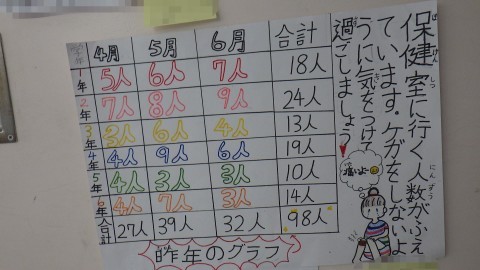 保健室に行く人数がふえ
ています。ケガをしないよ
うに気をつけて
過ごしましょう
ほけんしつ
にんずう
き
す
痛いよー
4月 5月 6月 合計
1年 5人 6人 7人 18人
2年 7人 8人 9人 24人
3年 3人 6人 4人 13人
4年 4人 9人 6人 19人
5年 4人 3人 3人 10人
6年 4人 7人 3人 14人
合計 27人 39人 32人 98人
昨年のグラフ